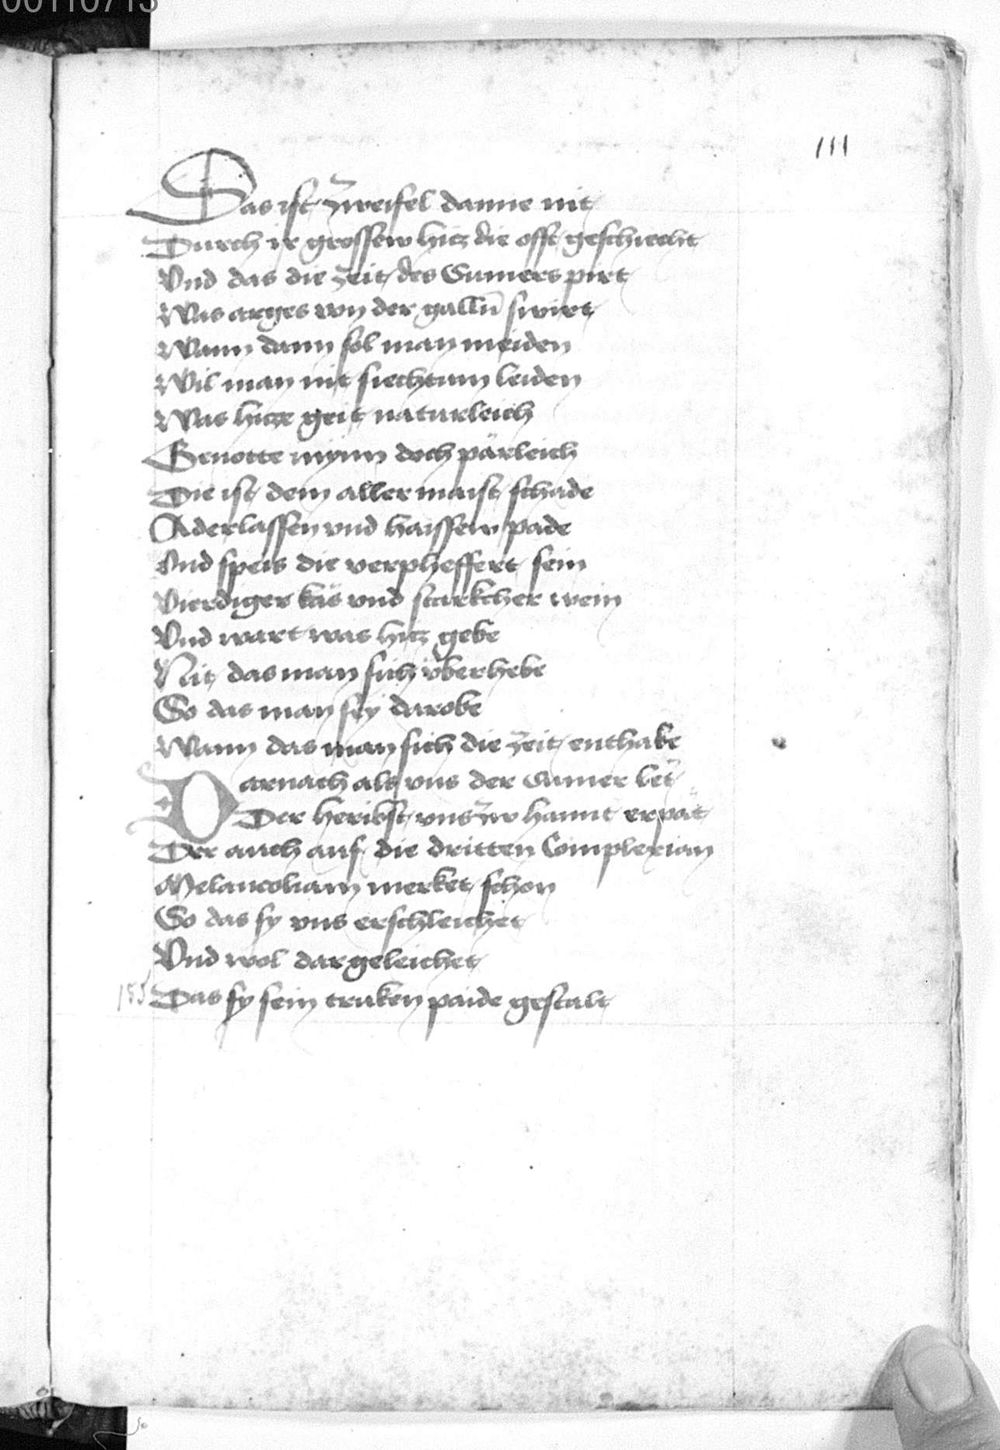 00110713
111
Das ist zweifel danne nit
Durch ir grossew hicz die offt geschiecht
Vnd das die zeit des Sumers pirt
Was arges von der gallñ swirt
Wann dann sol man meiden
Wil man nit siechtum leiden
Was hicze geit naturleich
Genotte mynn doch pärleich
Die ist dem aller maist schade
Aderlassen vnd haissew pade
Vnd speis die verpheffert sein
Vierdiger käs vnd starkcher wein
Vnd wart was hicz gebe
Nit das man sich vberhebe
So das man sey darobe
Wann das man sich die zeit enthabe
Darnach als vns der Sumer let
Der heribst vns zw hannt erpät
Der auch auf die dritten Complexian
Melancoliam merket schon
So das sy vns erschleichet
Vnd wol dar geleichet
155 Das sy sein truken paide gestalt